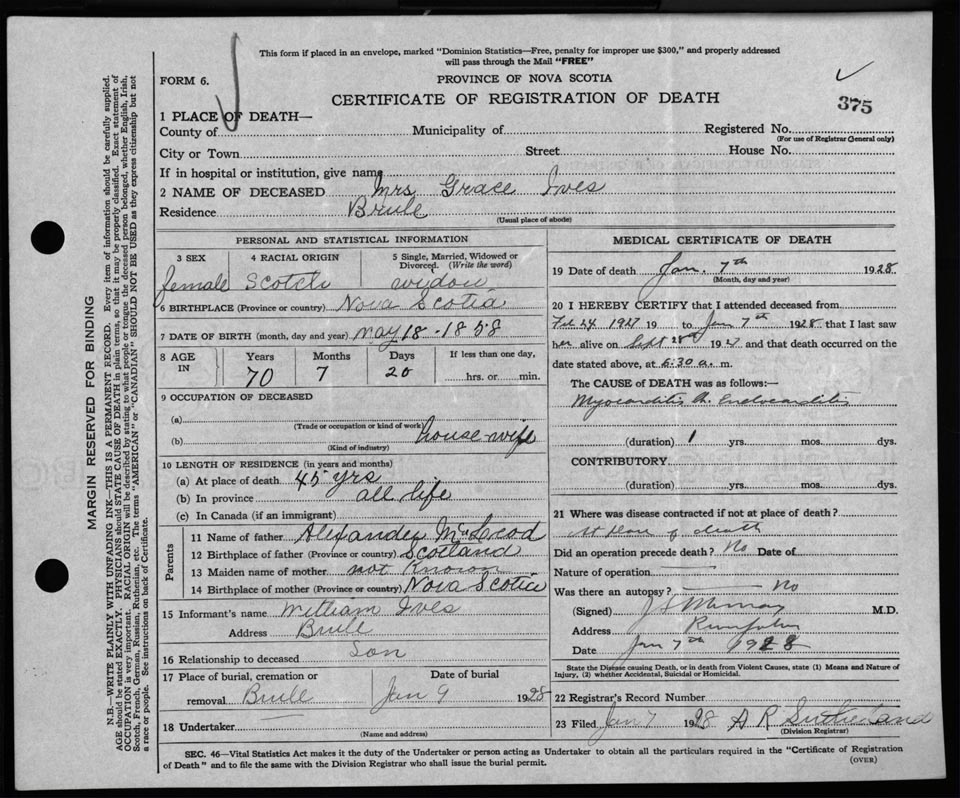 This form if placed in an envelope, marked "Dominion Statistics—Free, penalty for improper use $300," and properly addressed
will pass through the Mail "FREE"
FORM 6.
PROVINCE OF NOVA SCOTIA
CERTIFICATE OF REGISTRATION OF DEATH
375
1 PLACE OF DEATH—
County of Municipality of Registered No.
(For use of Registrar General only)
City or Town Street House No.
If in hospital or institution, give name
2 NAME OF DECEASED Mrs Grace Ives
Residence Brule
(Usual place of abode)
PERSONAL AND STATISTICAL INFORMATION
3 SEX 4 RACIAL ORIGIN 5 Single, Married, Widowed or Divorced. (Write the word)
female Scotch widow
6 BIRTHPLACE (Province or country) Nova Scotia
7 DATE OF BIRTH (month, day and year) May 18 - 1858
8 AGE IN Years Months Days If less than one day,
70 7 20 hrs. or min.
9 OCCUPATION OF DECEASED
(a)
(Trade or occupation or kind of work)
(b) house-wife
(Kind of industry)
10 LENGTH OF RESIDENCE (in years and months)
(a) At place of death 45 yrs
(b) In province all life
(c) In Canada (if an immigrant)
Parents
11 Name of father Alexander McLeod
12 Birthplace of father (Province or country) Scotland
13 Maiden name of mother not Known
14 Birthplace of mother (Province or country) Nova Scotia
15 Informant's name William Ives
Address Brule
16 Relationship to deceased Son
17 Place of burial, cremation or removal Date of burial
Brule Jan 9 1928
18 Undertaker —
(Name and address)
MEDICAL CERTIFICATE OF DEATH
19 Date of death Jan. 7th 1928
(Month, day and year)
20 I HEREBY CERTIFY that I attended deceased from
Feb 24 1927 19 to Jan 7th 1928 that I last saw
her alive on Sept 28 1927 and that death occurred on the
date stated above, at 6:30 a. m.
The CAUSE of DEATH was as follows:—
Myocarditis Ch. Endocarditis
(duration) 1 yrs. mos. dys.
CONTRIBUTORY
(duration) yrs. mos. dys.
21 Where was disease contracted if not at place of death?
At place of death
Did an operation precede death? No Date of
Nature of operation —
Was there an autopsy? No
(Signed) Murray M.D.
Address
Date Jan 7th 1928
State the Disease causing Death, or in death from Violent Causes, state (1) Means and Nature of
Injury, (2) whether Accidental, Suicidal or Homicidal.
22 Registrar's Record Number
23 Filed Jan 7 1928 A R Sutherland
(Division Registrar)
SEC. 46—Vital Statistics Act makes it the duty of the Undertaker or person acting as Undertaker to obtain all the particulars required in the "Certificate of Registration
of Death" and to file the same with the Division Registrar who shall issue the burial permit.
(OVER)
MARGIN RESERVED FOR BINDING
N.B.—WRITE PLAINLY WITH UNFADING INK—THIS IS A PERMANENT RECORD. Every item of information should be carefully supplied.
AGE should be stated EXACTLY. PHYSICIANS should STATE CAUSE OF DEATH in plain terms, so that it may be properly classified. Exact statement of
OCCUPATION is very important. RACIAL ORIGIN will be described by stating to what people or tongue the deceased person belonged, whether English, Irish,
Scotch, French, German, Russian, Ruthenian, etc. The terms "AMERICAN" or "CANADIAN" SHOULD NOT BE USED as they express citizenship but not
a race or people. See instructions on back of Certificate.